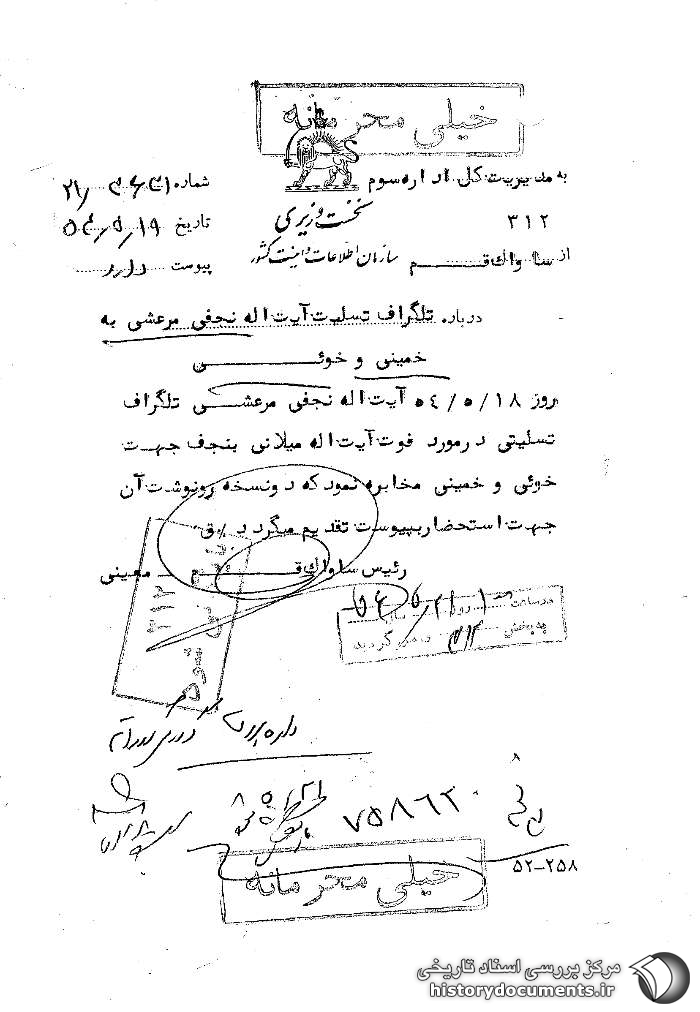 خیلی محرمانه
به مدیریت کل اداره سوم
۳۱۲
از ساواک قم
نخست وزیری
سازمان اطلاعات و امنیت کشور
شماره ۲۱/
تاریخ ۵۴/۵/۱۹
پیوست دارد
درباره تلگراف تسلیت آیت اله نجفی مرعشی به
خمینی و خوئی
روز ۵٤/۵/۱۸ آیت اله نجفی مرعشی تلگراف
تسلیتی در مورد فوت آیت اله میلانی بنجف جهت
خوئی و خمینی مخابره نمود که دو نسخه رونوشت آن
جهت استحضار بپیوست تقدیم میگردد
رئیس ساواک قم معینی
۳۱۲
در ساعت روز
به بخش ۳۱۲ وارد گردید
۷۵۸۶۲۰
خیلی محرمانه
۵۲-۲۵۸
مرکز بررسی اسناد تاریخی
historydocuments.ir